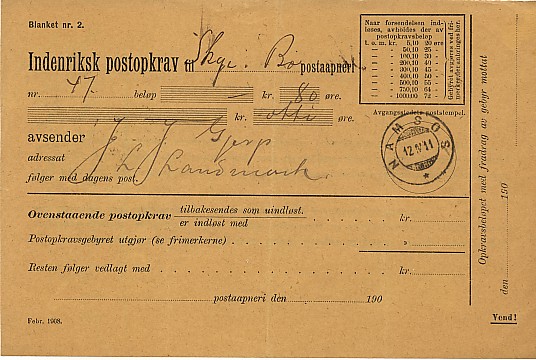 Blanket nr. 2.
Indenriksk postopkrav til Skge. Bo postaapneri
nr. 47. beløp kr. 80 øre.
kr. otti øre.
avsender J. J. Gjerp
adressat L. Landmark.
følger med dagens post.
Naar forsendelsen indløses, avholdes der av postopkravsbeløp
t. o. m. kr. 5,10 20 øre
" " " 50,10 25 "
" " " 100,10 30 "
" " " 200,10 40 "
" " " 300,10 45 "
" " " 400,10 50 "
" " " 500,10 55 "
" " " 750,10 64 "
" " " 1000.00 72 "
Gebyret avgjøres ved frimerker, utregninges her.
Avgangsstedets poststempel.
NAMSOS
12 IV 11
Ovenstaaende postopkrav tilbakesendes som uindløst.
er indløst med kr.
Postopkravsgebyret utgjør (se frimerkerne) »
Resten følger vedlagt med kr.
postaapneri den 190
Febr. 1908.
Vend!
Opkravsbeløpet med fradrag av gebyr mottat
den 190